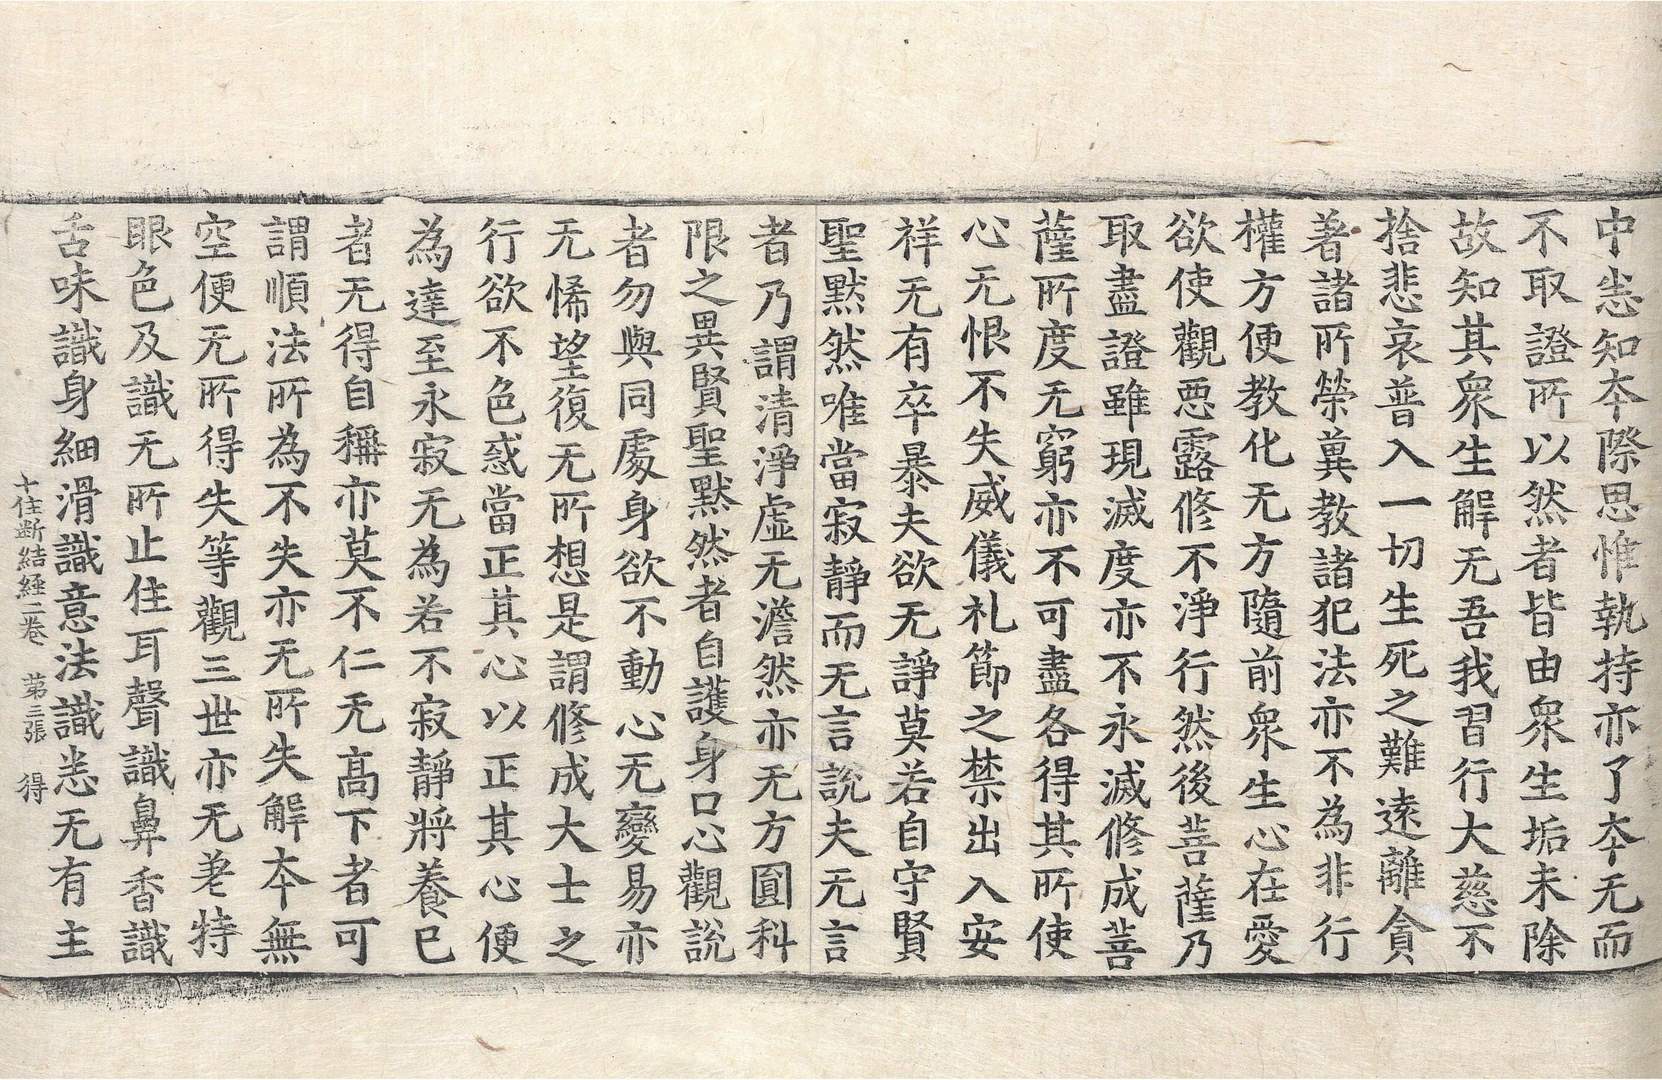 中恙知夲際思惟執持亦了夲无而
不取證所以然者皆由衆生垢未除
故知其衆生解无吾我習行大慈不
捨悲哀普入一切生死之難遠離貪
著諸所榮兾教諸犯法亦不為非行
權方便教化无方隨前衆生心在愛
欲使觀惡露修不淨行然後菩薩乃
取盡證雖現滅度亦不永滅修成菩
薩所度无窮亦不可盡各得其所使
心无恨不失威儀礼節之禁出入安
祥无有卒暴夫欲无諍莫若自守賢
聖默然唯當寂靜而无言說夫无言
者乃謂清淨虛无澹然亦无方圓科
限之異賢聖默然者自護身口心觀說
者勿與同處身欲不動心无變易亦
无悕望復无所想是謂修成大士之
行欲不色惑當正其心以正其心便
為達至永寂无為若不寂靜將養已
者无得自稱亦莫不仁无高下者可
謂順法所為不失亦无所失解夲無
空便无所得失等觀三世亦无差特
眼色及識无所止住耳聲識鼻香識
舌味識身細滑識意法識恙无有主
十住斷結經二卷 苐三張 得